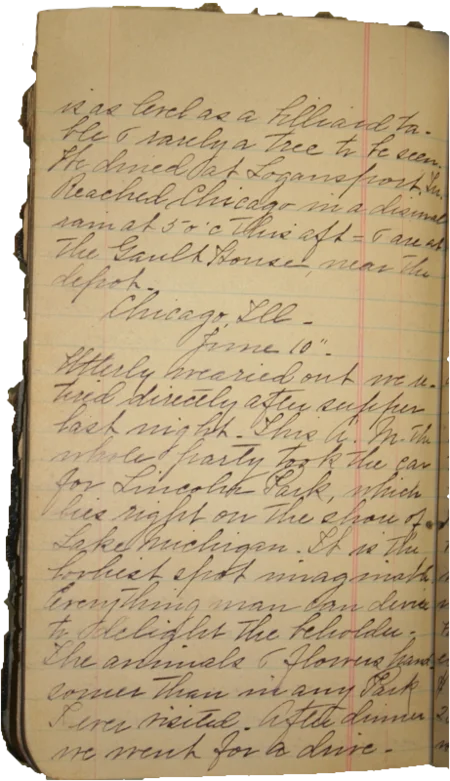 is as level as a billiard ta-
ble & rarely a tree to be seen.
We dined at Logansport, In.
Reached Chicago in a dismal
rain at 5 o'c this aft = & are at
the Gault House, near the
depot.
Chicago, Ill -
June 10".
Utterly wearied out we re-
tired directly after supper
last night. This A. M. the
whole party took the car
for Lincoln Park, which
lies right on the shore of
Lake Michigan. It is the
loveliest spot imaginable
Everything man can devise
to delight the beholder.
The animals & flowers hand-
somer than in any Park
I ever visited. After dinner
we went for a drive -